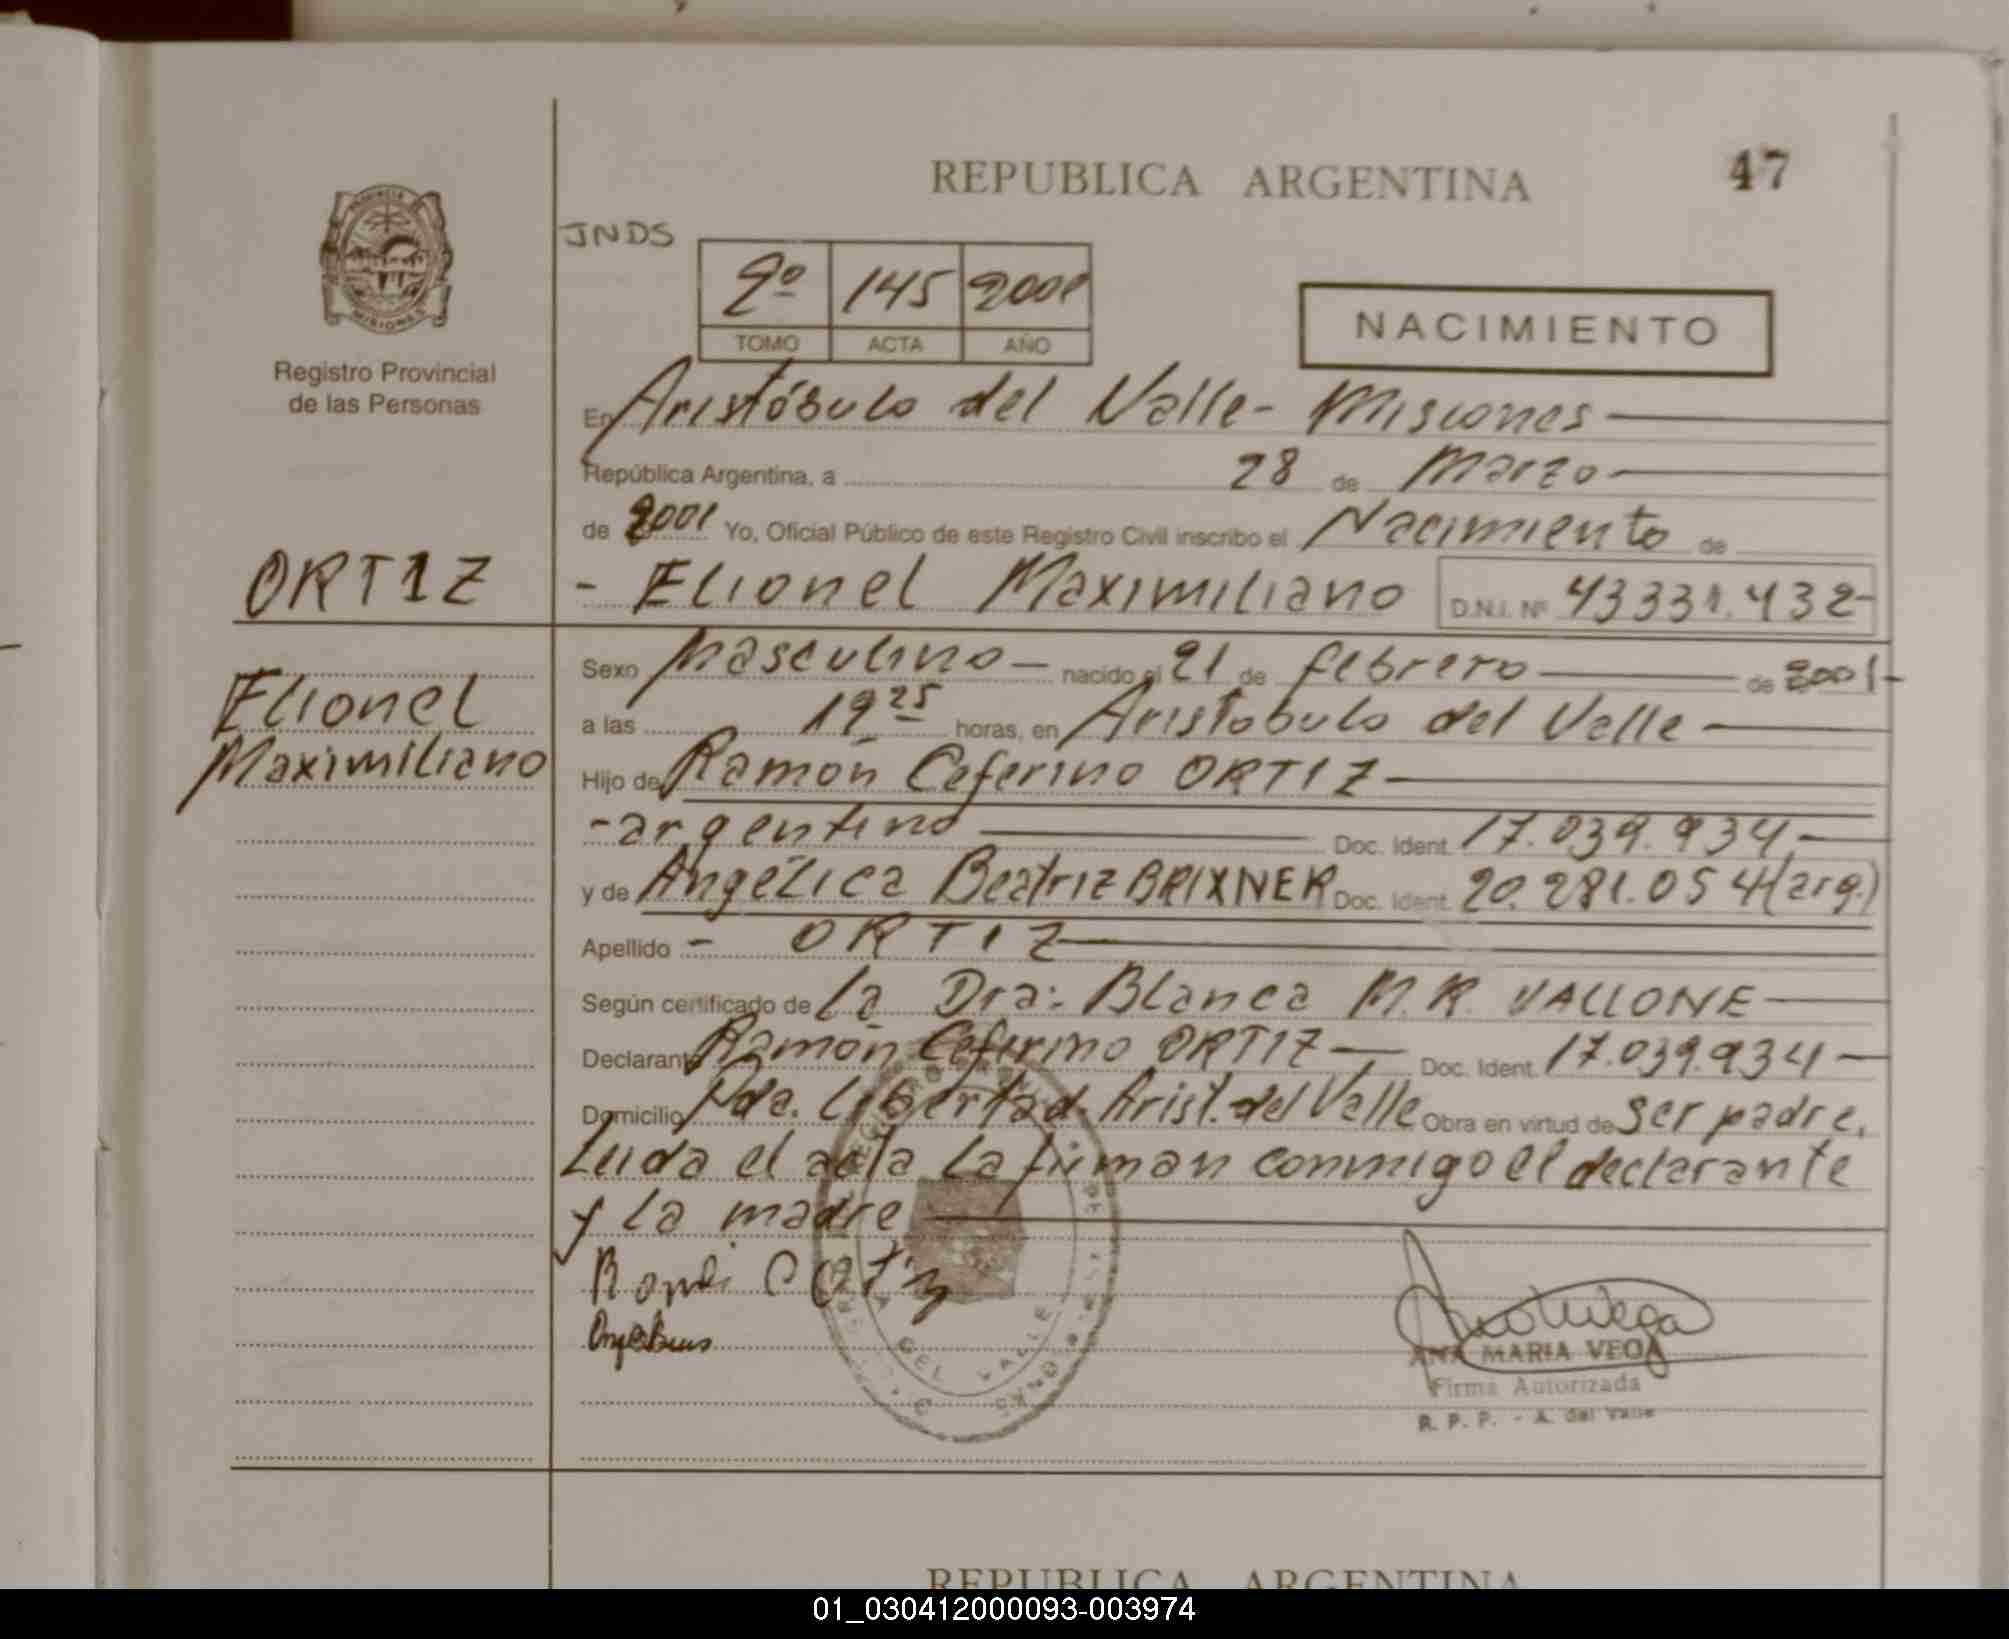 REPUBLICA ARGENTINA
47
PROVINCIA
MISIONES
Registro Provincial
de las Personas
JNDS
2º 145 2001
TOMO ACTA AÑO
NACIMIENTO
En Aristóbulo del Valle - Misiones
República Argentina, a 28 de Marzo
de 2001 Yo, Oficial Público de este Registro Civil inscribo el Nacimiento de
ORTIZ
- Elionel Maximiliano D.N.I. Nº 43331.432-
Elionel
Maximiliano
Sexo Masculino - nacido el 21 de febrero de 2001-
a las 19 25 horas, en Aristobulo del Valle
Hijo de Ramón Ceferino ORTIZ
- argentino Doc. Ident. 17.039.934
y de Angélica Beatriz BRIXNER Doc. Ident. 20.281.054 (arg.)
Apellido - ORTIZ
Según certificado de la Dra: Blanca M.R. VALLONE
Declarante Ramón Ceferino ORTIZ - Doc. Ident. 17.039.934
Domicilio Nda. Libertad. Arist. del Valle Obra en virtud de ser padre.
Leida el acta la firman conmigo el declarante
y la madre
DEL VALLE
ANA MARIA VEGA
Firma Autorizada
R. P. P. - A. del Valle
REPUBLICA ARGENTINA
01_030412000093-003974